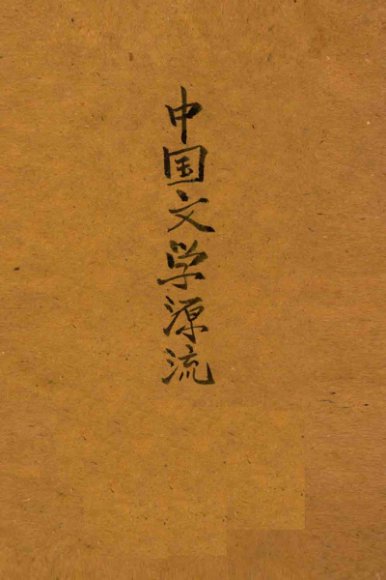 中国文学源流